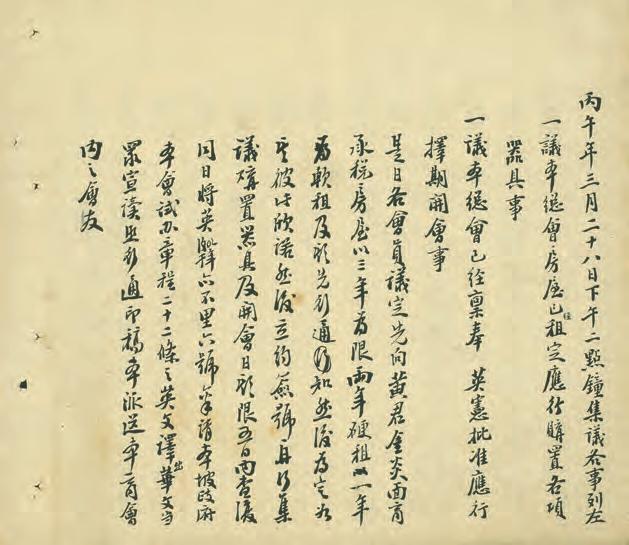 丙午年三月二十八日下午二點鐘集議各事列左
一議本總會房屋已經租定應行購置各項
器具事
一議本總會已經稟奉 英憲批准應行
擇期開會事
是日各會員議定先向黃君金炎面商
承稅房屋以三年為限兩年硬租以一年
為軟租及預先行通知然後為定如
其彼此欣諾然後立約簽號再行集
議購置器具及開會日期限五日內查復
同日將英以不里六號奉請本坡政府
本會試办章程二十二條之英文譯出華文当
眾宣讀照行通印稿本派送本商會
內之會友